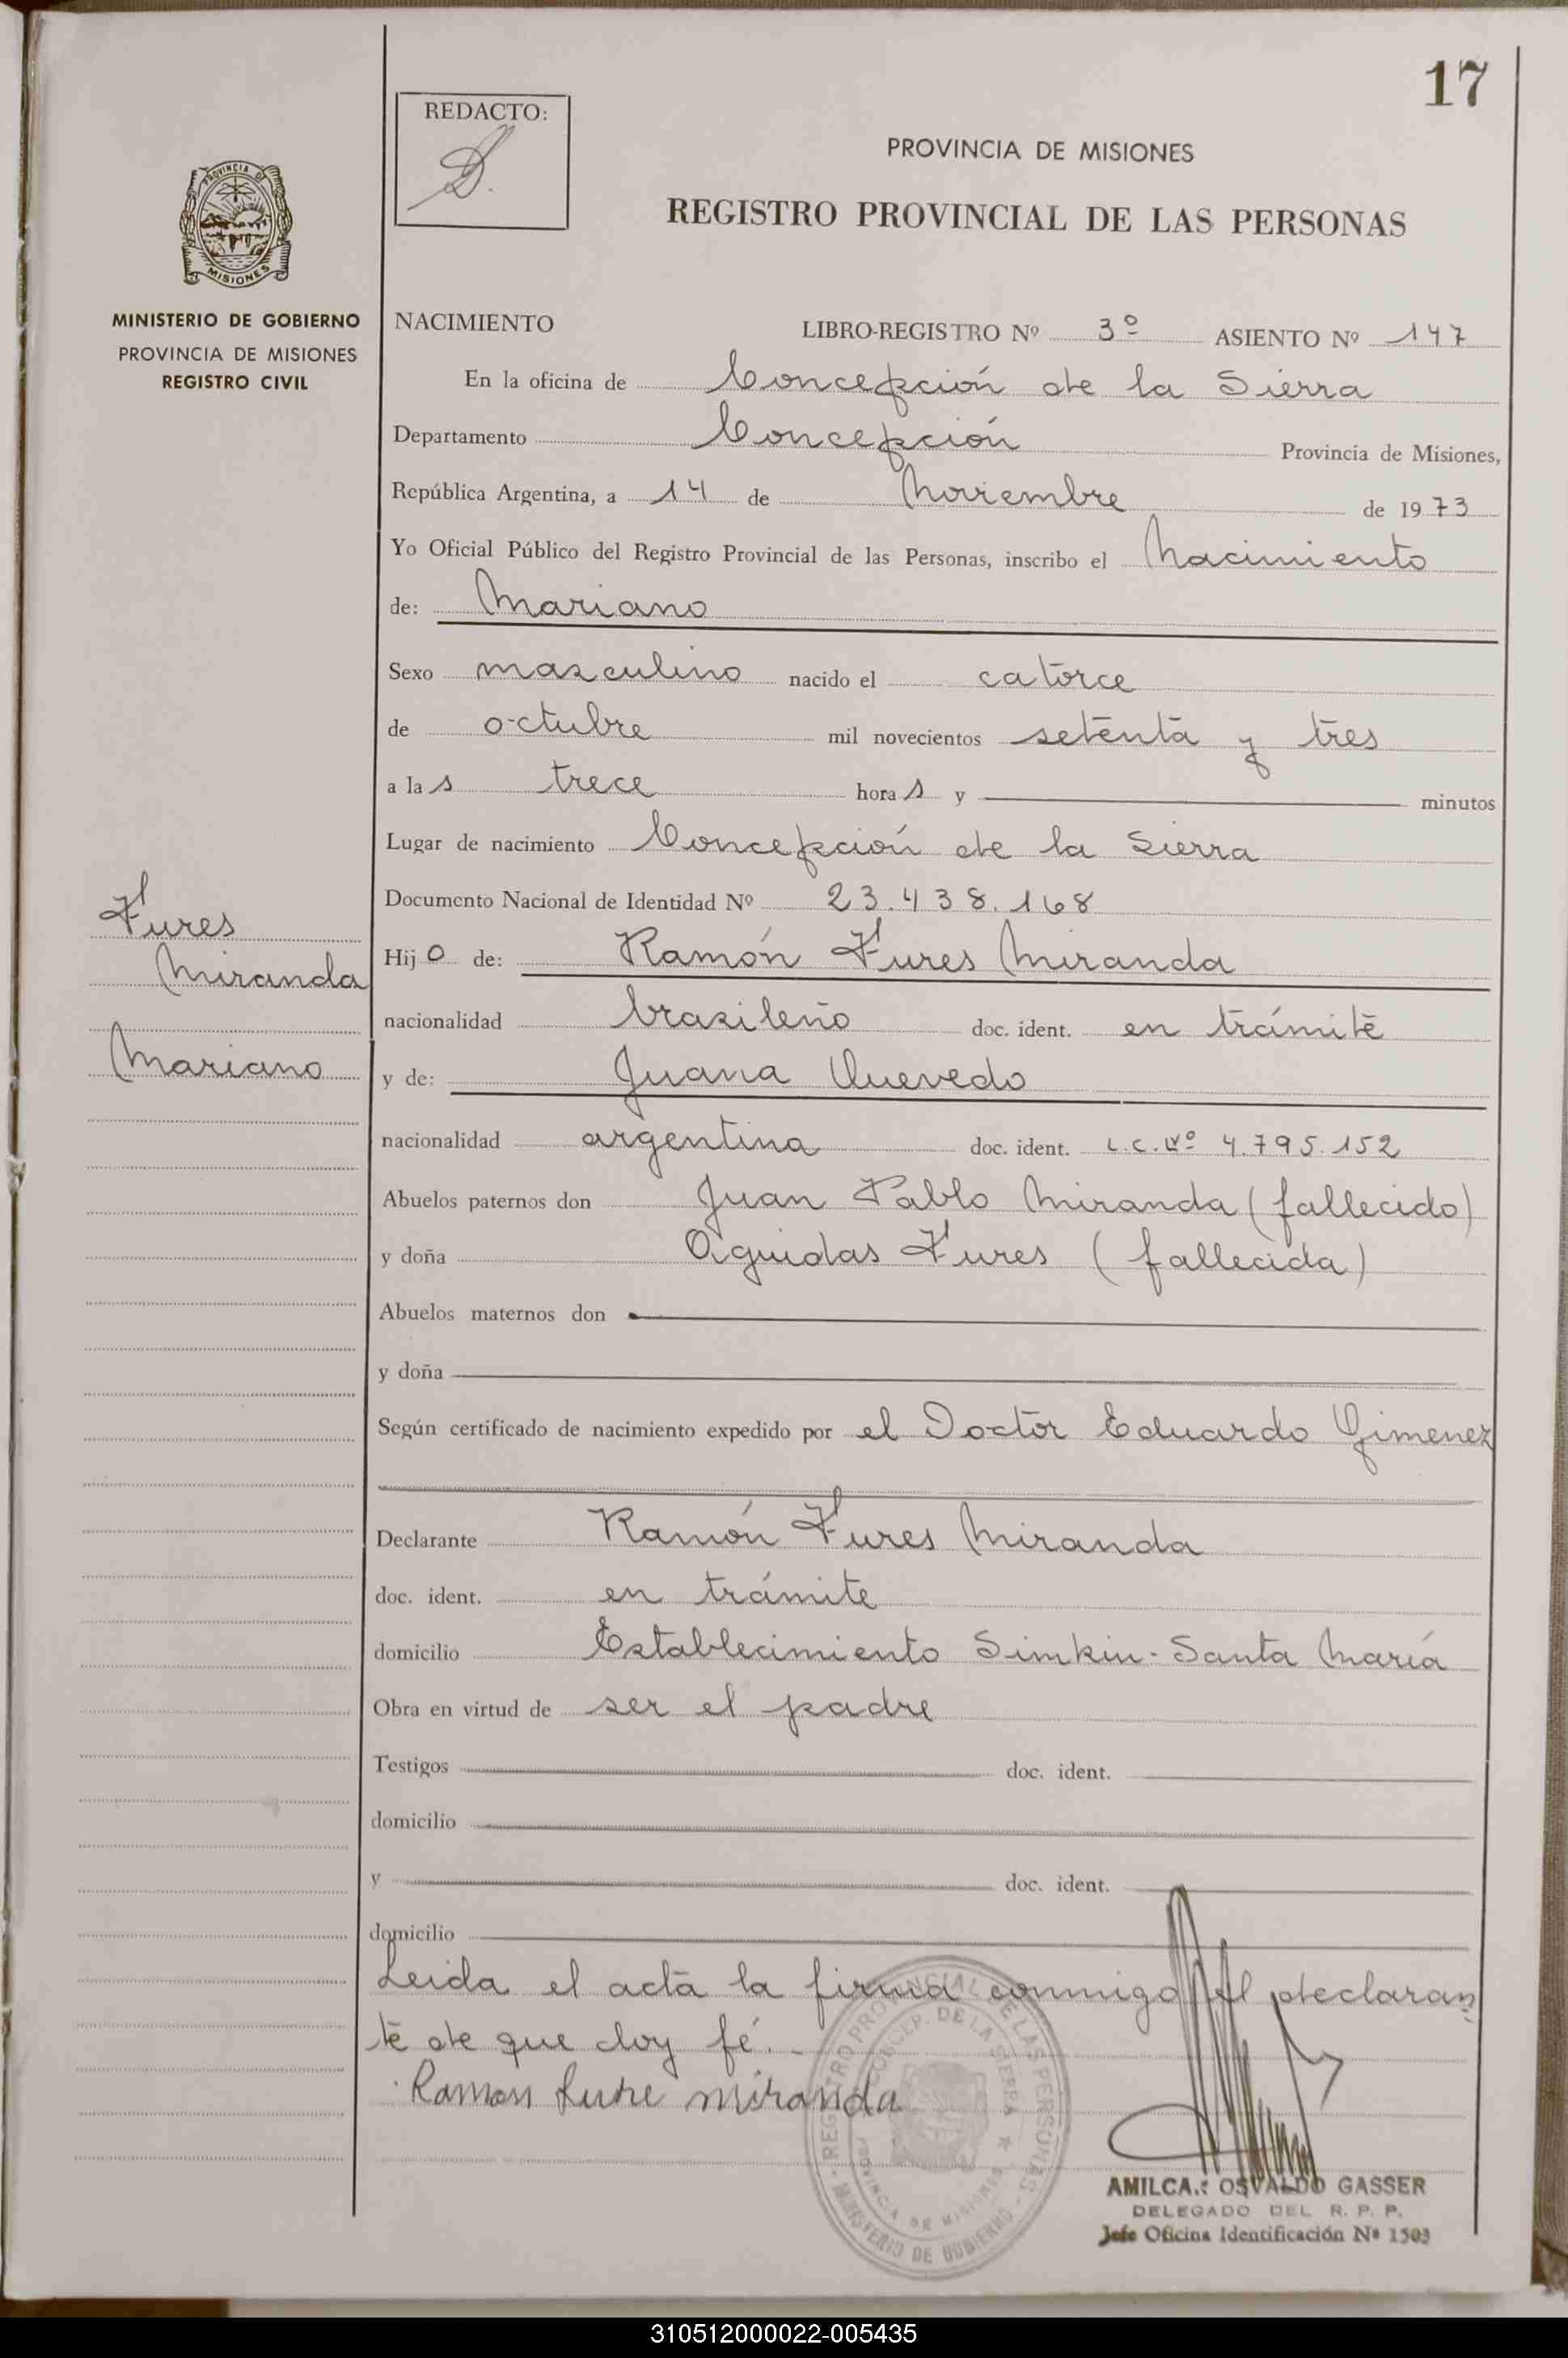 17
REDACTO:
PROVINCIA DE MISIONES
REGISTRO PROVINCIAL DE LAS PERSONAS
PROVINCIA DE
MISIONES
MINISTERIO DE GOBIERNO
PROVINCIA DE MISIONES
REGISTRO CIVIL
NACIMIENTO LIBRO-REGISTRO Nº 3º ASIENTO Nº 147
En la oficina de Concepción de la Sierra
Departamento Concepción Provincia de Misiones,
República Argentina, a 14 de Noviembre de 1973
Yo Oficial Público del Registro Provincial de las Personas, inscribo el Nacimiento
de: Mariano
Sexo masculino nacido el catorce
de octubre mil novecientos setenta y tres
a las trece horas y minutos
Lugar de nacimiento Concepción de la Sierra
Documento Nacional de Identidad Nº 23.438.168
Fures
Miranda
Mariano
Hijo de: Ramón Fures Miranda
nacionalidad brasileño doc. ident. en trámite
y de: Juana Quevedo
nacionalidad argentina doc. ident. L.C. Nº 4.795.152
Abuelos paternos don Juan Pablo Miranda (fallecido)
y doña Aguidas Fures (fallecida)
Abuelos maternos don
y doña
Según certificado de nacimiento expedido por el Doctor Eduardo Gimenez
Declarante Ramón Fures Miranda
doc. ident. en trámite
domicilio Establecimiento Simkin-Santa María
Obra en virtud de ser el padre
Testigos doc. ident.
domicilio
y doc. ident.
domicilio
Leida el acta la firma conmigo el declaran
te de que doy fé.-
Ramon miranda
REGISTRO PROVINCIAL DE LAS PERSONAS
CONCEP. DE LA SIERRA
PROVINCIA DE MISIONES
MINISTERIO DE GOBIERNO
AMILCA.: OSVALDO GASSER
DELEGADO DEL R. P. P.
Jefe Oficina Identificación Nº 1503
310512000022-005435